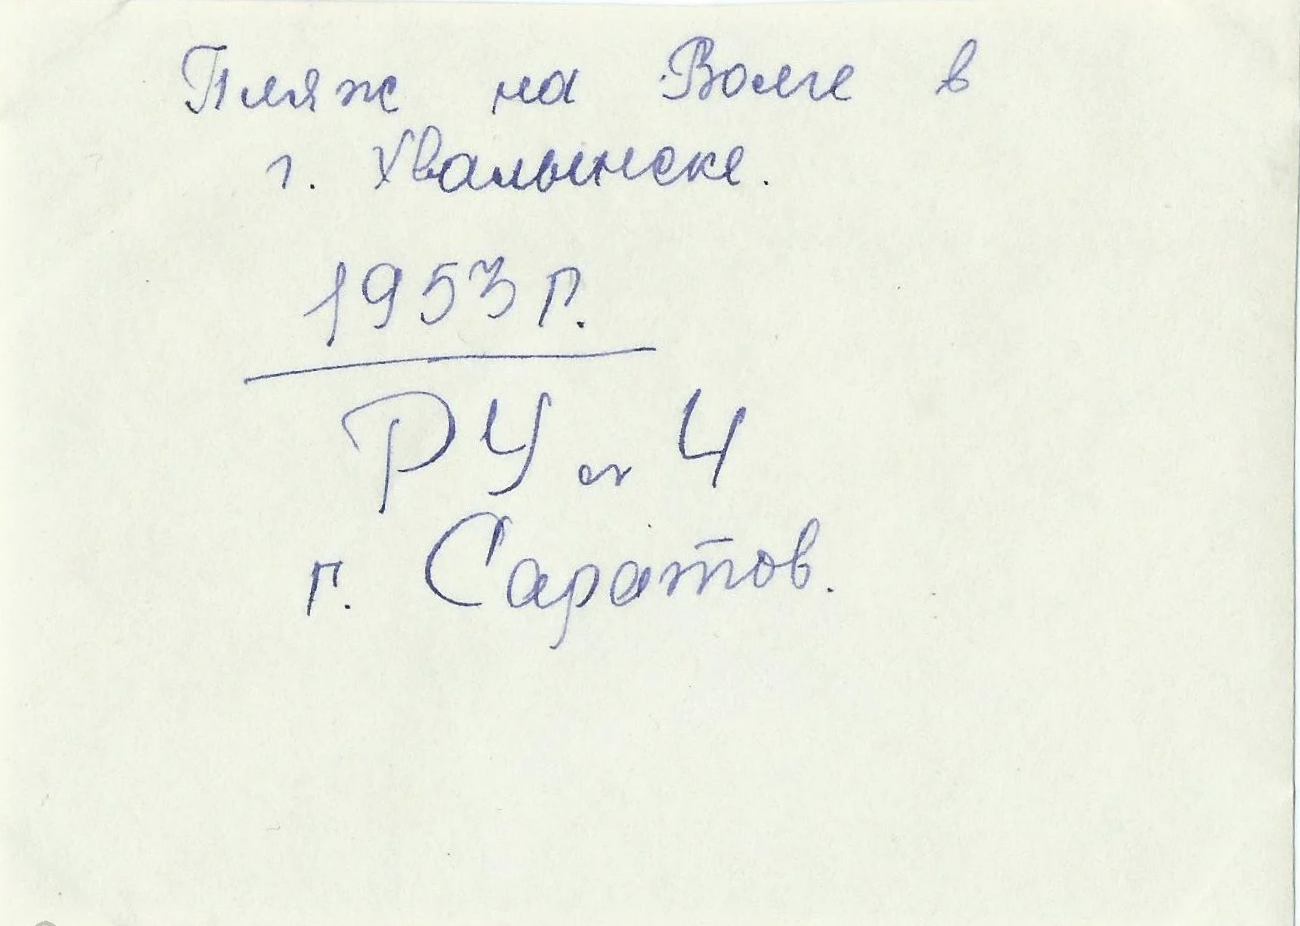 Пляж на Волге в
г. Хвалынске.
1953 г.
РУ 4
г. Саратов.